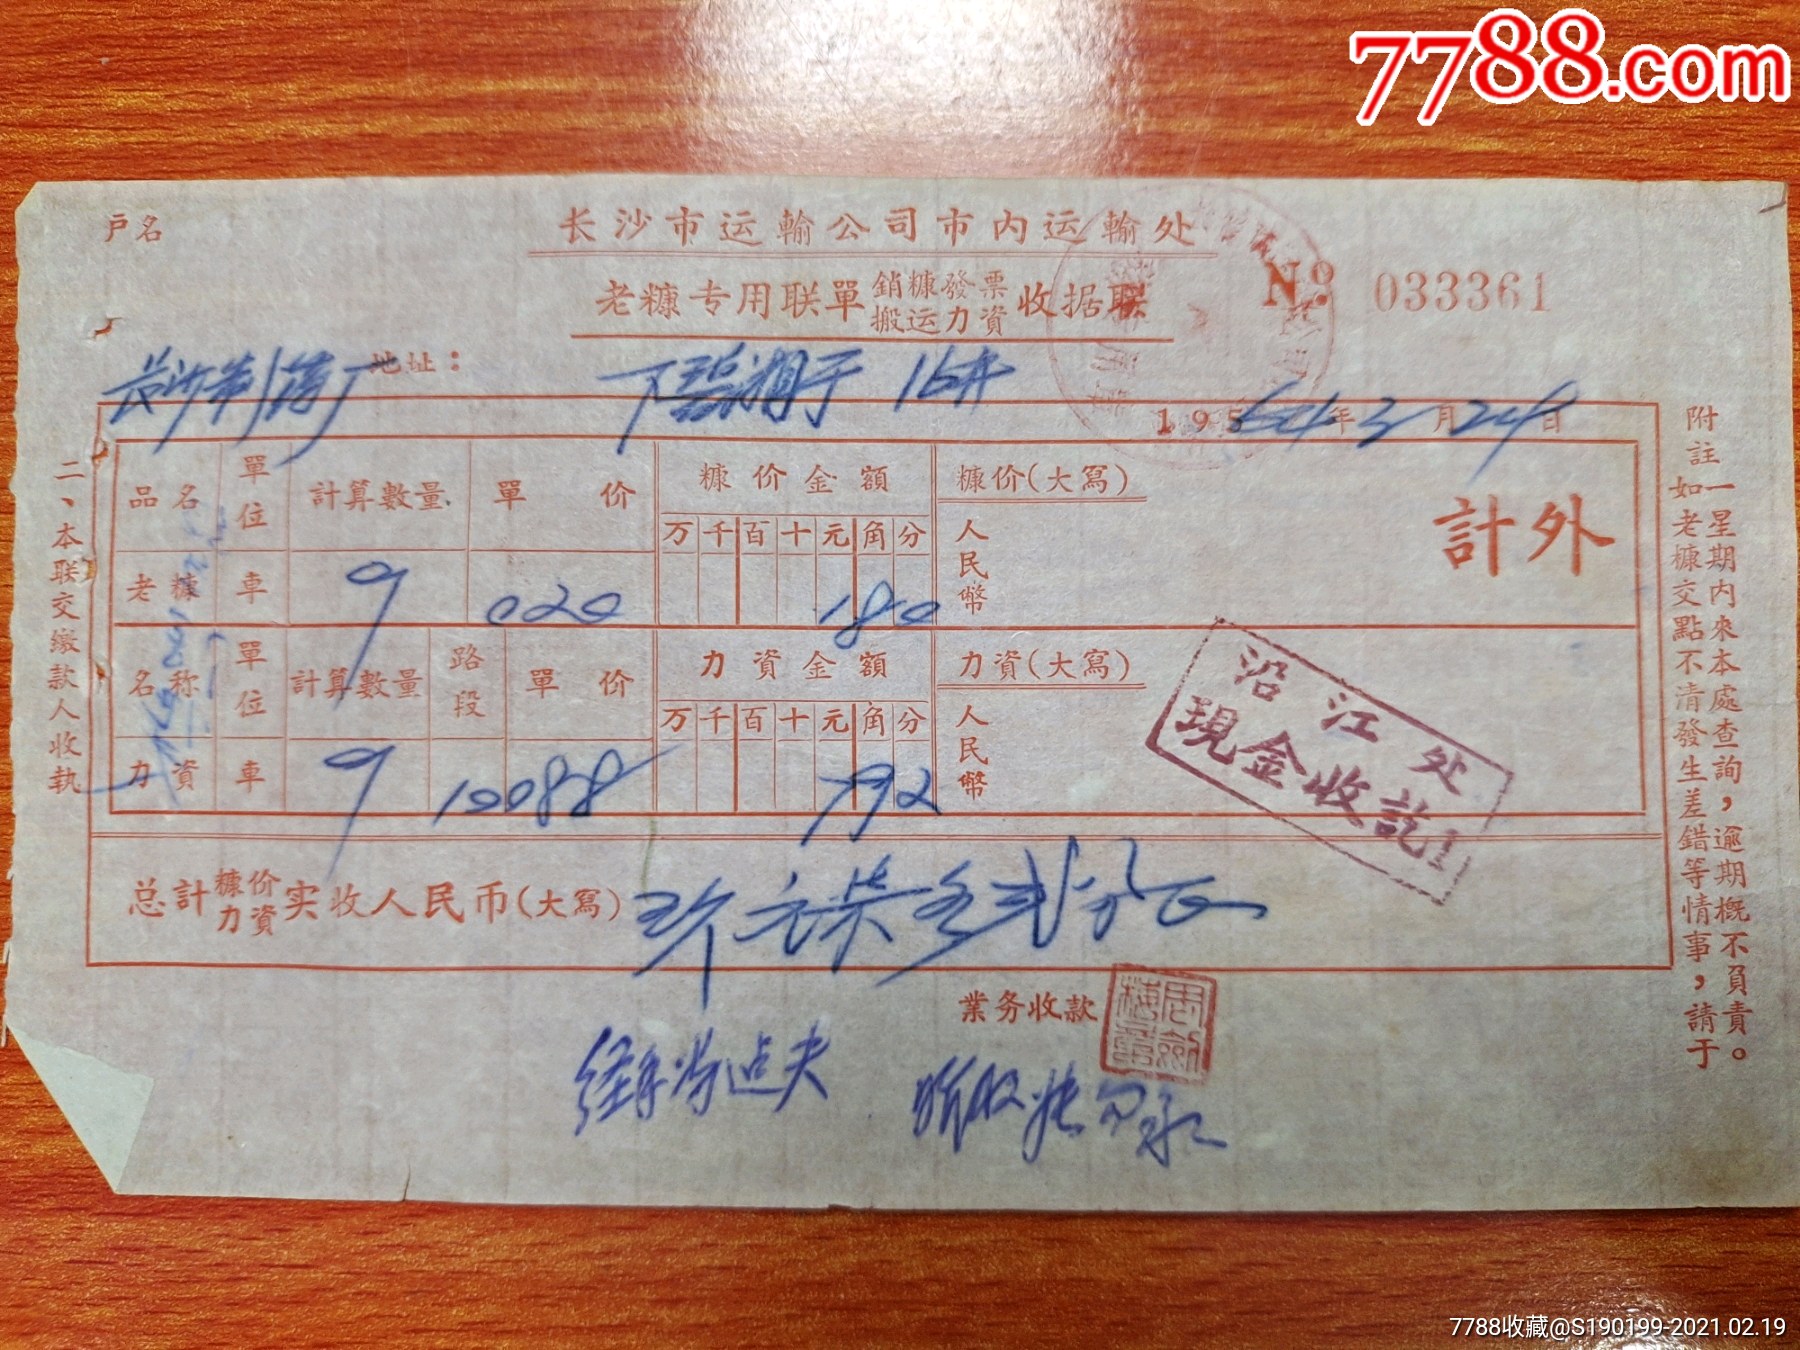 7788.com
户名
长沙市运輸公司市内运輸处
老糠专用联單 銷糠發票 搬运力資 收据联
№ 033361
地址：
16号
195 64年3月24日
二、本联交繳款人收执
品名 單位 計算數量 單价 糠价金額 糠价(大寫)
万千百十元角分
人民幣
計外
老糠 車 9 020 180
名称 單位 計算數量 路段 單价 力資金額 力資(大寫)
万千百十元角分
人民幣
力資 車 9 1 0088 792
沿江处
現金收訖1
总計 糠价 力資 实收人民币(大寫) 玖元柒角弍分正
業务收款
经手
附註
一星期内來本處查詢，逾期概不負責。
如老糠交點不清發生差錯等情事，請于
7788收藏@S190199-2021.02.19